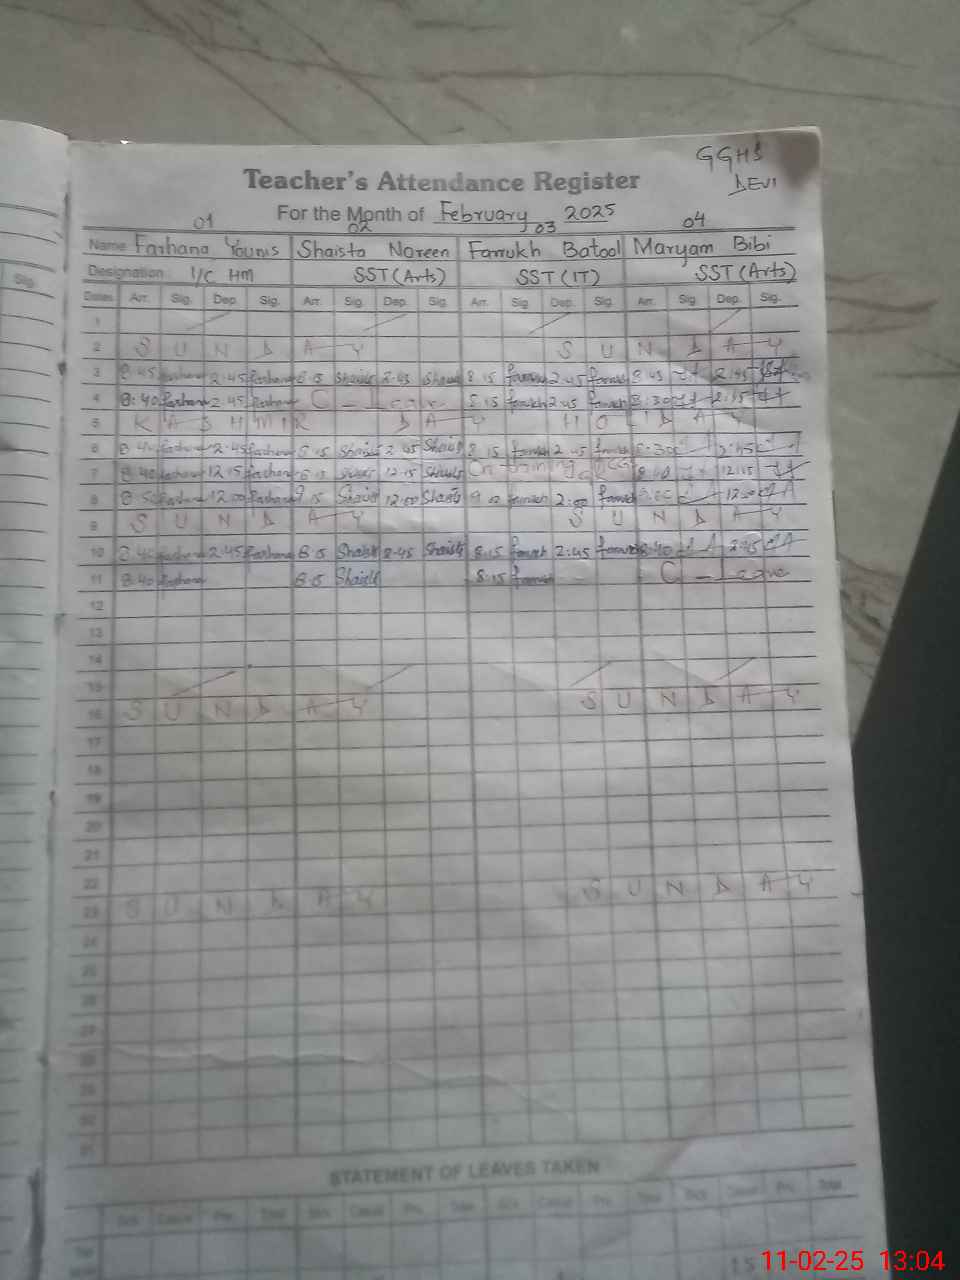 GGHS
DEVI
Teacher's Attendance Register
For the Month of February 2025
01 02 03 04
Name Farhana Younis Shaista Noreen Farrukh Batool Maryam Bibi
Designation I/C HM SST (Arts) SST (IT) SST (Arts)
Dates Arr. Sig. Dep. Sig. Arr. Sig. Dep. Sig. Arr. Sig. Dep. Sig. Arr. Sig. Dep. Sig.
1
2 S U N D A Y S U N D A Y
3 8:45 Farhana 2:45 Farhana 8:15 Shaista 2:45 Shaista 8:15 Farrukh 2:45 Farrukh 8:45 2:45
4 8:40 Farhana 2:45 Farhana C-Leave 8:15 Farrukh 2:45 Farrukh 8:30 2:45
5 K A S H M I R D A Y H O L I D A Y
6 8:40 Farhana 2:45 Farhana 8:15 Shaista 2:45 Shaista 8:15 Farrukh 2:45 Farrukh 8:30 2:45
7 8:40 Farhana 12:15 Farhana 8:15 Shaista 12:15 Shaista On training 8:40 12:15
8 8:50 Farhana 12:00 Farhana 9:15 Shaista 12:00 Shaista 9:00 Farrukh 2:00 Farrukh 12:00
9 S U N D A Y S U N D A Y
10 8:40 Farhana 2:45 Farhana 8:15 Shaista 2:45 Shaista 8:15 Farrukh 2:45 Farrukh 8:40 2:45
11 8:40 Farhana 8:15 Shaista 8:15 Farrukh C-Leave
12
13
14
15
16 S U N D A Y S U N D A Y
17
18
19
20
21
22
23 S U N D A Y S U N D A Y
24
25
26
27
28
29
30
31
STATEMENT OF LEAVES TAKEN
Sick Casual Priv. Total Sick Casual Priv. Total Sick Casual Priv. Total Sick Casual Priv. Total
11-02-25 13:04